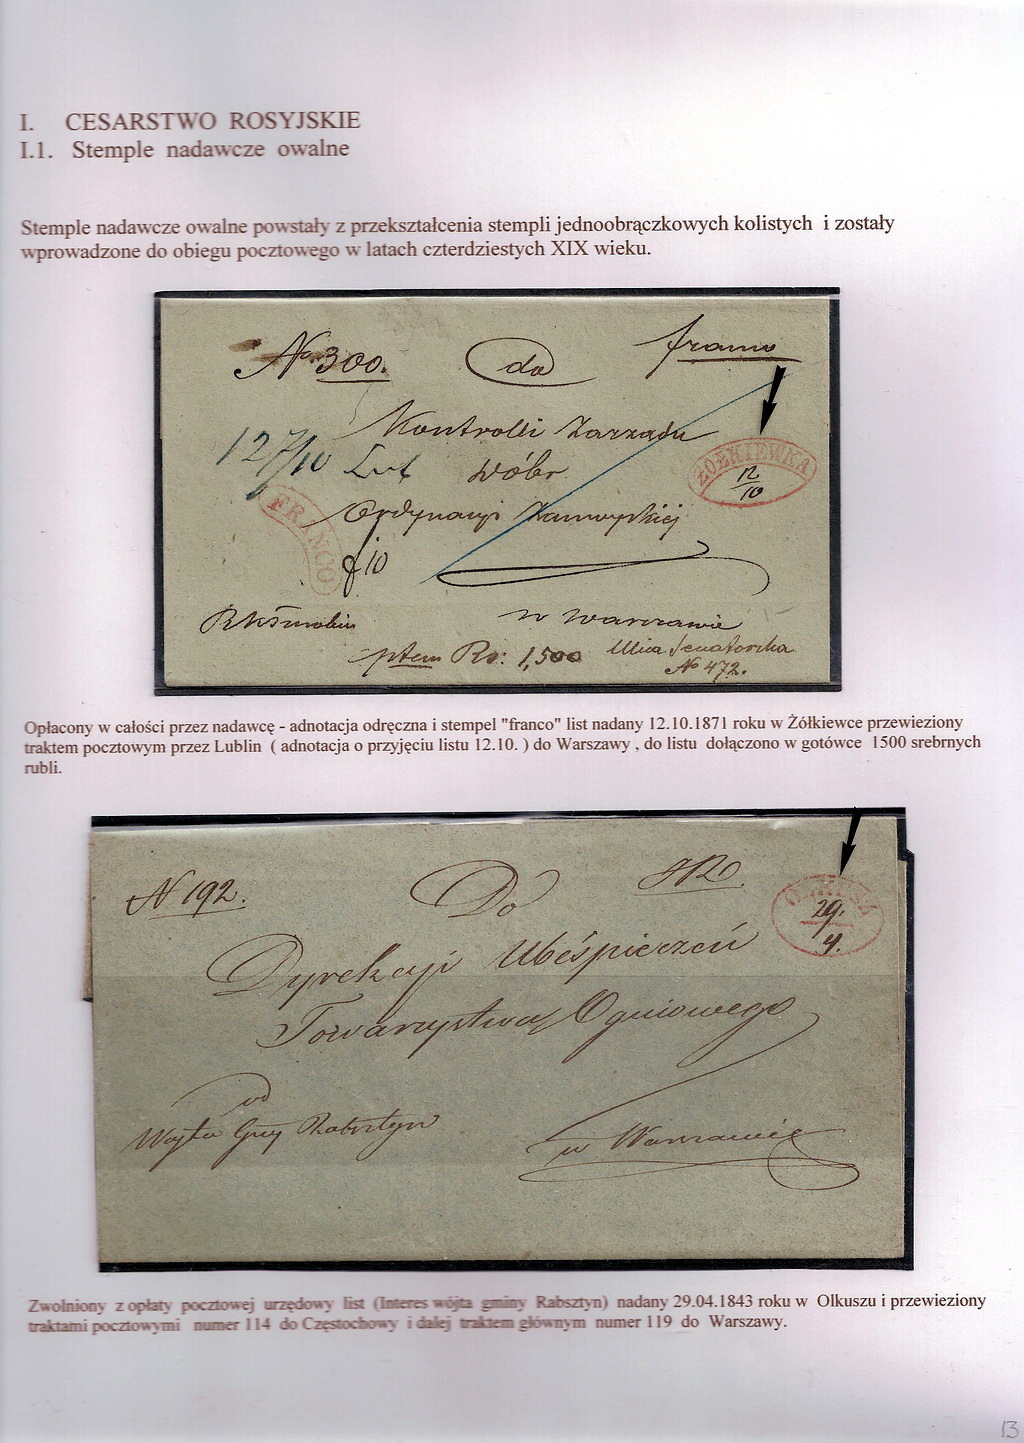 I. CESARSTWO ROSYJSKIE
I.1. Stemple nadawcze owalne
Stemple nadawcze owalne powstały z przekształcenia stempli jednoobrączkowych kolistych i zostały
wprowadzone do obiegu pocztowego w latach czterdziestych XIX wieku.
No 300. do franco
Kontrolli Zarządu
12/10 Lub Wóbr
ŻÓŁKIEWKA
12/10
FRANCO
Ordynacyi Zamoyskiej
10
w Warszawie
ptem Rs: 1,500 Ulica Senatorska
No 472.
Opłacony w całości przez nadawcę - adnotacja odręczna i stempel "franco" list nadany 12.10.1871 roku w Żółkiewce przewieziony
traktem pocztowym przez Lublin ( adnotacja o przyjęciu listu 12.10. ) do Warszawy , do listu dołączono w gotówce 1500 srebrnych
rubli.
N 192. Do
OLKUSZ
29.
4.
Dyrekcyi Ubéspieczeń
Towarzystwa Ogniowego
od
Wójta Gmy Rabsztyn
w Warszawie
Zwolniony z opłaty pocztowej urzędowy list (Interes wójta gminy Rabsztyn) nadany 29.04.1843 roku w Olkuszu i przewieziony
traktami pocztowymi numer 114 do Częstochowy i dalej traktem głównym numer 119 do Warszawy.
13